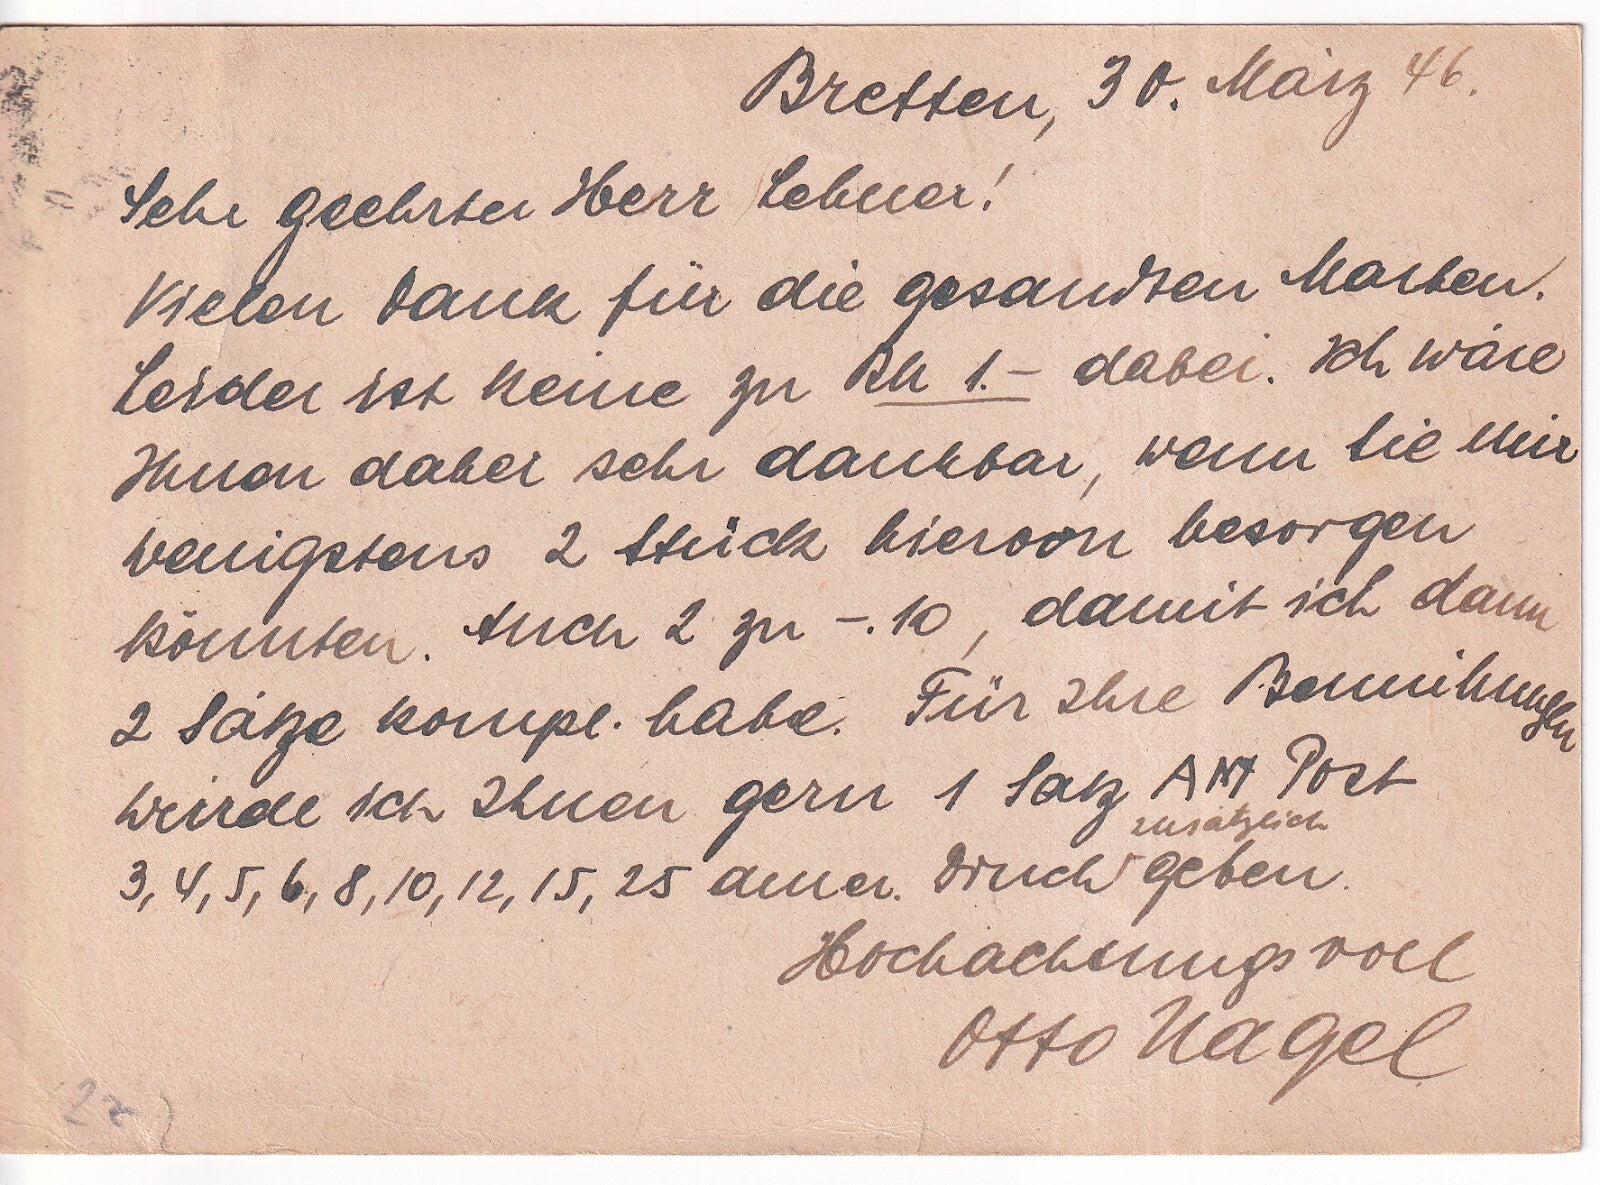 Bretten, 30. März 46.
Sehr geehrter Herr Lehner!
Vielen Dank für die gesandten Marken.
Leider ist keine zu RM 1.– dabei. Ich wäre
Ihnen daher sehr dankbar, wenn Sie mir
wenigstens 2 Stück hiervon besorgen
könnten. Auch 2 zu –.10, damit ich dann
2 Sätze kompl. habe. Für Ihre Bemühungen
würde ich Ihnen gern 1 Satz AM Post
zusätzlich
3, 4, 5, 6, 8, 10, 12, 15, 25 amer. Druck geben.
Hochachtungsvoll
Otto Nagel